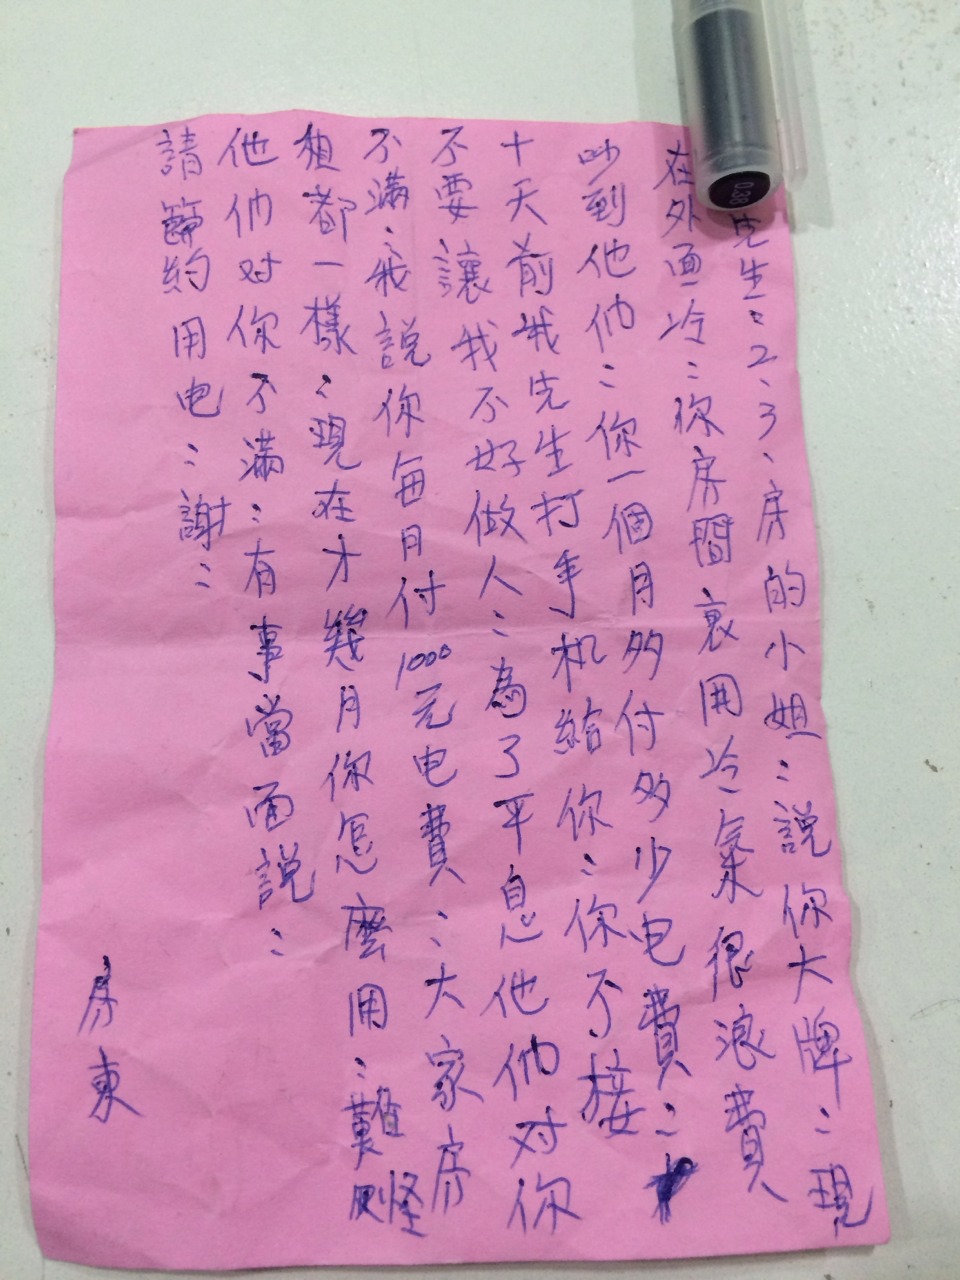 先生:2、3、房的小姐:説你大牌:現
在外面冷:你房間裏開冷氣很浪費
吵到他們:你一個月多付多少电費:
十天前我先生打手机給你:你不接
不要讓我不好做人:為了平息他們对你
不滿:我説你每月付1000元电費:大家房
租都一樣:現在才幾月你怎麼用:難怪
他們对你不滿:有事當面説:
請節約用电:謝:
房東
0.38